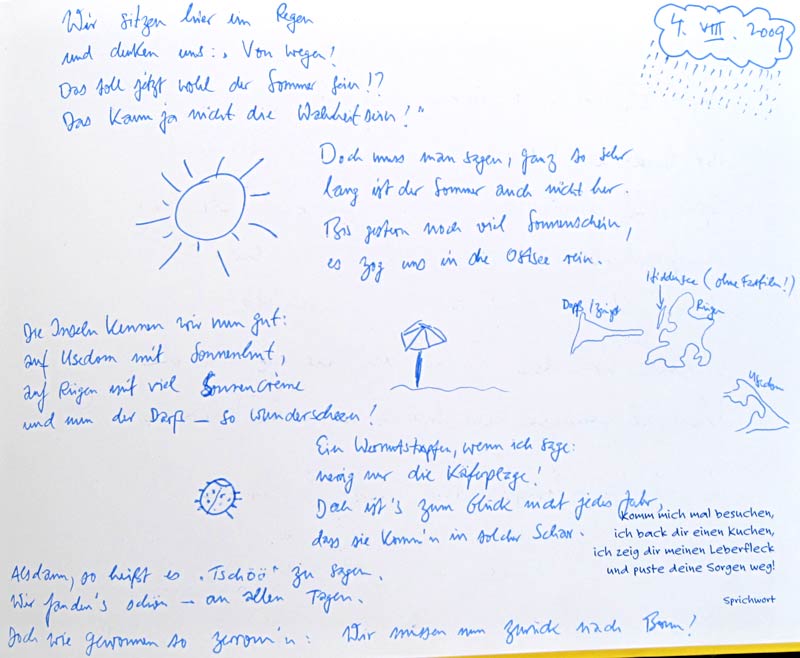 4. VIII. 2009
Wir sitzen hier im Regen
und denken uns: „Von wegen!
Das soll jetzt wohl der Sommer sein!?
Das kann ja nicht die Wahrheit sein!"
Doch muss man sagen, ganz so sehr
lang ist der Sommer auch nicht her.
Bis gestern noch viel Sonnenschein,
es zog uns in die Ostsee rein.
Hiddensee (ohne Fastfilm!)
Darß/Zingst
Rügen
Usedom
Die Inseln kennen wir nun gut:
auf Usedom mit Sonnenhut,
auf Rügen mit viel Sonnencrème
und nun der Darß – so wunderscheen!
Ein Wermutstropfen, wenn ich sage:
nervig nur die Käferplage!
Doch ist's zum Glück nicht jedes Jahr,
dass sie komm'n in solcher Schar.
komm mich mal besuchen,
ich back dir einen Kuchen,
ich zeig dir meinen Leberfleck
und puste deine Sorgen weg!
Sprichwort
Alsdann, so heißt es „Tschöö" zu sagen.
Wir fanden's schön – an allen Tagen.
Doch wie gewonnen so zerronn'n: Wir müssen nun zurück nach Bonn!